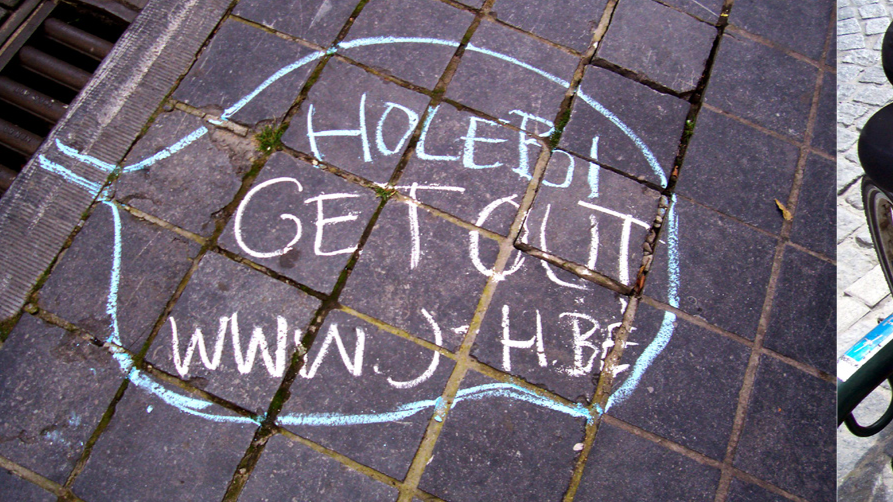 HOLEBI
GET OUT
WWW.J-H.BE